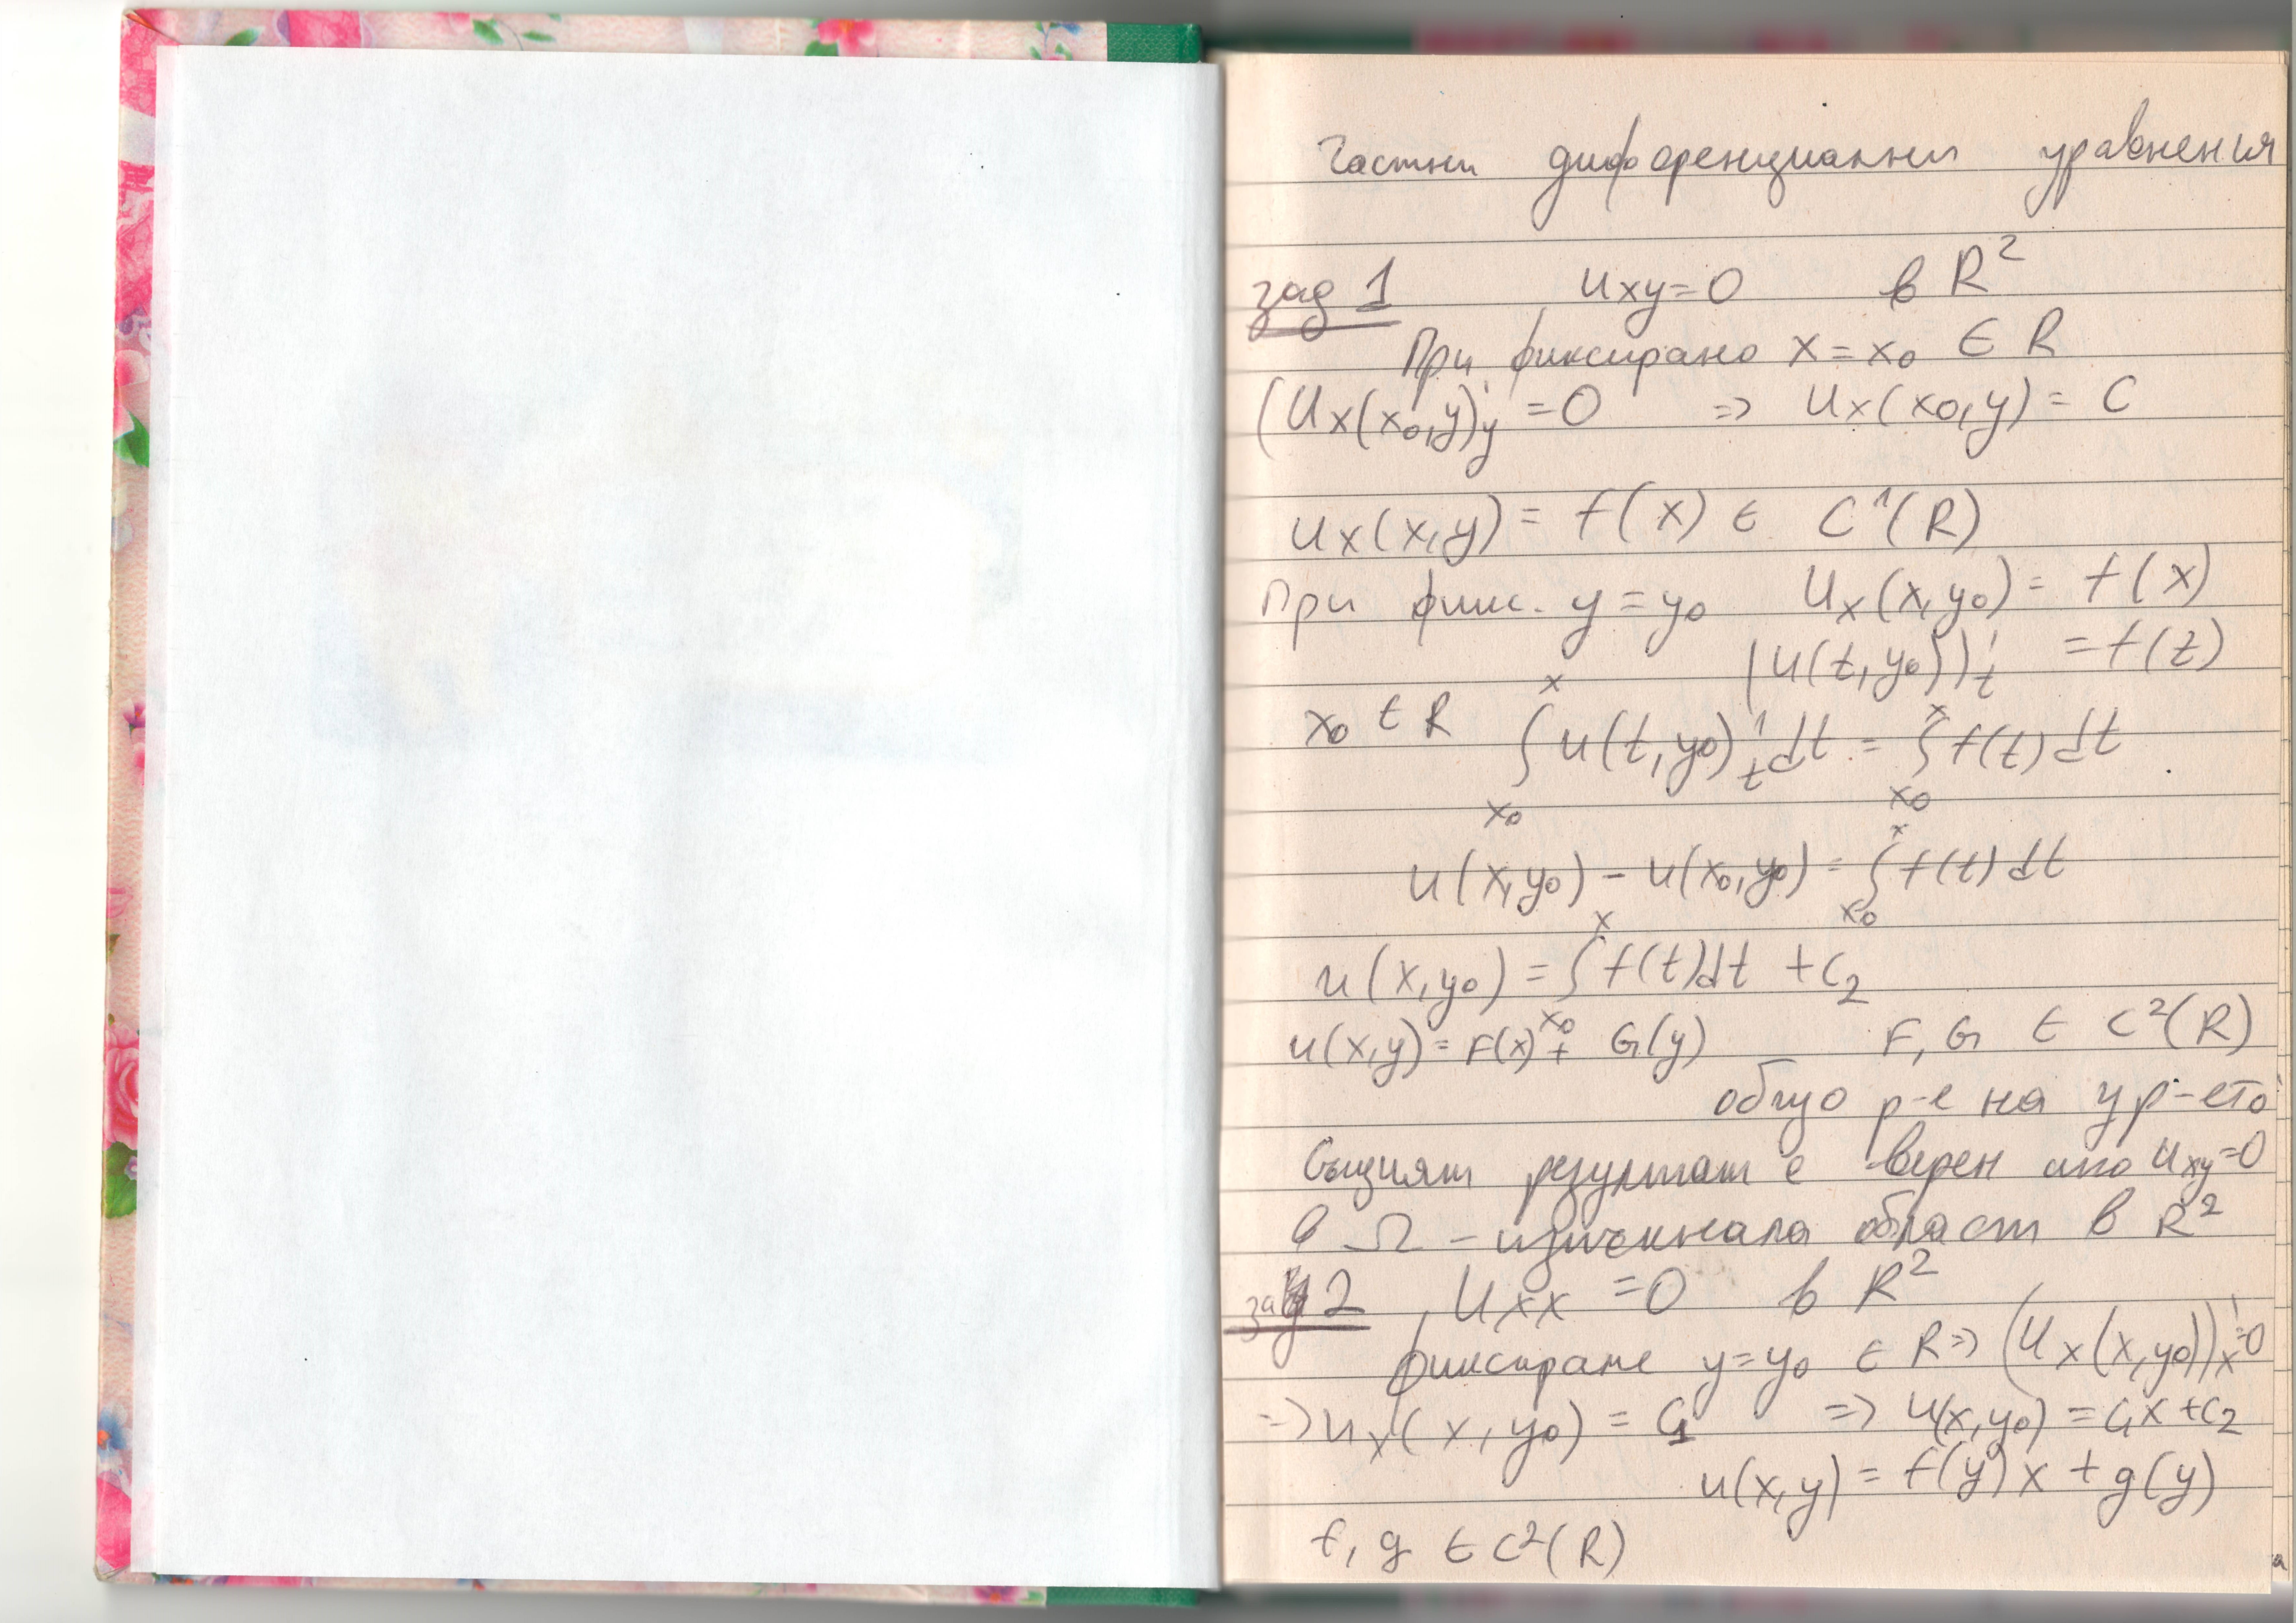 Частни диференциални уравнения
зад 1 u_xy=0 в R²
При фиксирано x=x₀ ∈ R
(u_x(x₀,y)'_y =0 => u_x(x₀,y)= C
u_x(x,y)= f(x) ∈ C¹(R)
При фикс. y=y₀ u_x(x,y₀)= f(x)
(u(t,y₀))'_t =f(t)
x₀ ∈ R ∫_{x₀}^{x} u(t,y₀)'_t dt = ∫_{x₀}^{x} f(t)dt
u(x,y₀) - u(x₀,y₀) = ∫_{x₀}^{x} f(t)dt
u(x,y₀) = ∫_{x₀}^{x} f(t)dt +C₂
u(x,y)= F(x)+ G(y) F, G ∈ C²(R)
общо р-е на ур-ето
Същият резултат е верен ако u_xy=0
в Ω - изпъкнала област в R²
зад 2 u_xx =0 в R²
фиксираме y=y₀ ∈ R => (u_x(x,y₀))'_x=0
=> u_x(x,y₀) = C₁ => u(x,y₀) = C₁x +C₂
u(x,y) = f(y)x + g(y)
f, g ∈ C²(R)